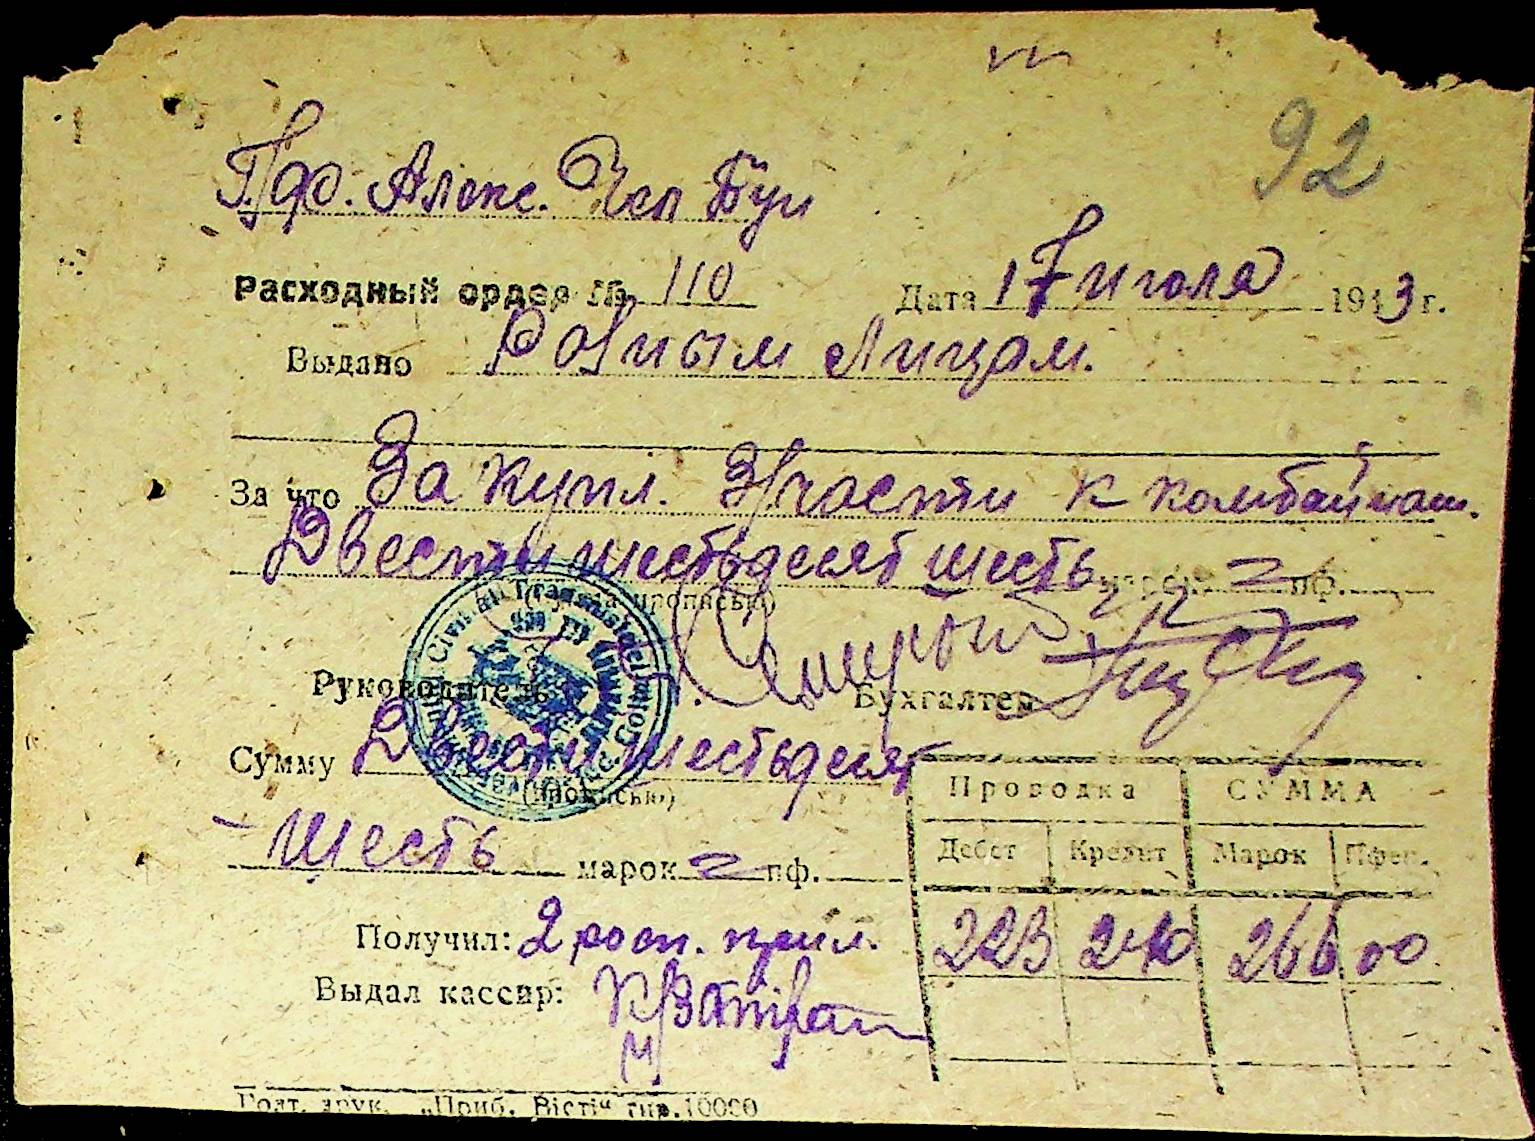 92
Расходный ордер № 110 Дата 17 июля 1943 г.
Выдано Розным лицам.
За что За купл. З/части к комбайнам.
Двести шестьдесят шесть марок = пф.
(сумма прописью)
Руководитель Бухгалтер
Сумму Двести шестьдесят
(прописью)
шесть марок = пф.
Проводка СУММА
Дебет Кредит Марок Пфен.
223 240 266 00
Получил: 2 росп. прил.
Выдал кассир:
Голт. друк. „Приб. Вісті“ тир. 10000